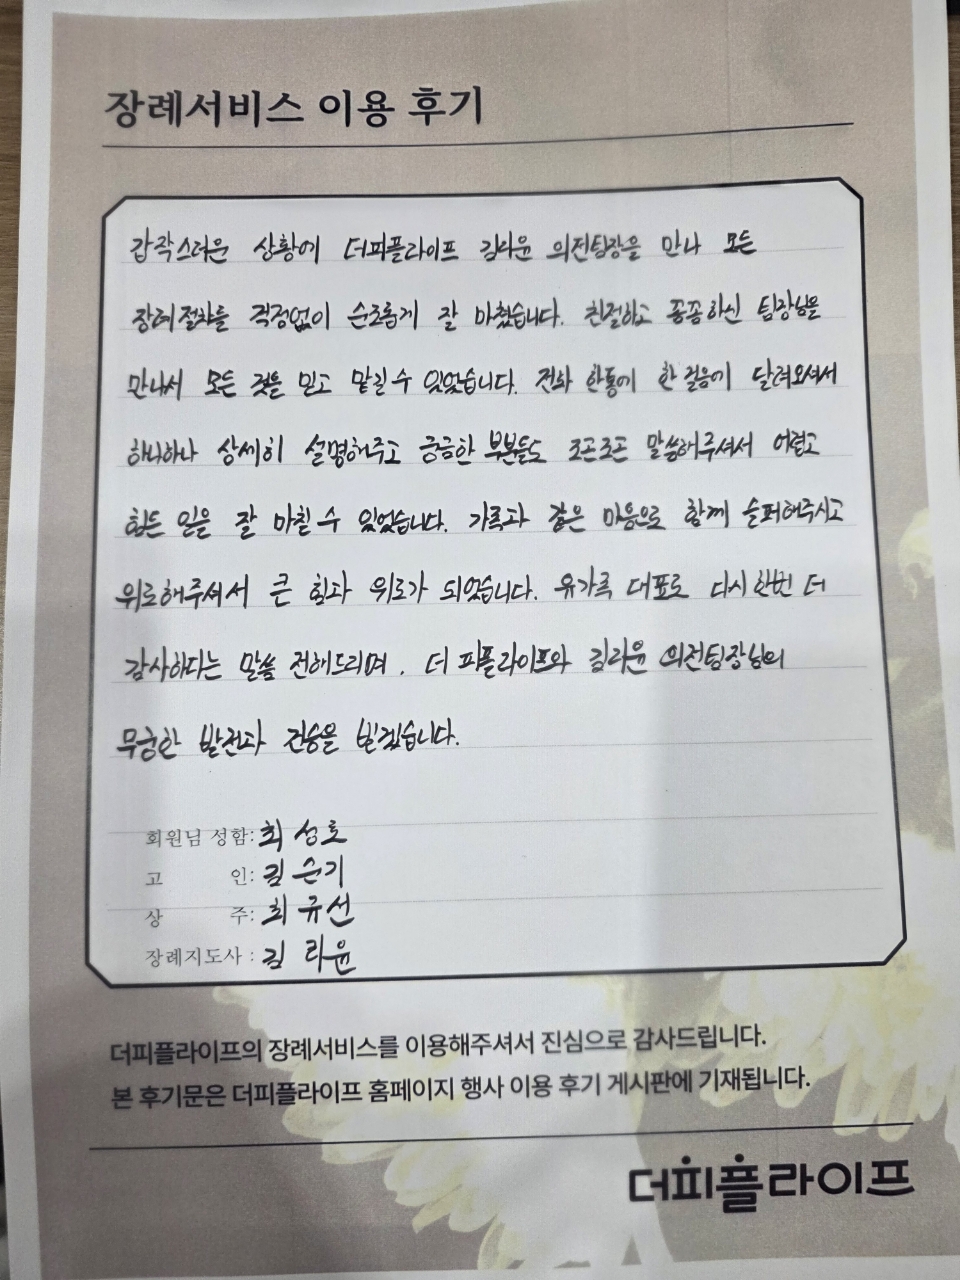 장례서비스 이용 후기
갑작스러운 상황에 더피플라이프 김라윤 의전팀장을 만나 모든
장례절차를 걱정없이 순조롭게 잘 마쳤습니다. 친절하고 꼼꼼하신 팀장님을
만나서 모든 것을 믿고 맡길 수 있었습니다. 전화 한통에 한걸음에 달려오셔서
하나하나 상세히 설명해주고 궁금한 부분들도 조곤조곤 말씀해주셔서 어렵고
힘든 일을 잘 마칠 수 있었습니다. 가족과 같은 마음으로 함께 슬퍼해주시고
위로해주셔서 큰 힘과 위로가 되었습니다. 유가족 대표로 다시 한번 더
감사하다는 말씀 전해드리며, 더피플라이프와 김라윤 의전팀장님의
무궁한 발전과 건승을 빌겠습니다.
회원님 성함: 최성로
고 인: 김순기
상 주: 최규선
장례지도사 : 김라윤
더피플라이프의 장례서비스를 이용해주셔서 진심으로 감사드립니다.
본 후기문은 더피플라이프 홈페이지 행사 이용 후기 게시판에 기재됩니다.
더피플라이프